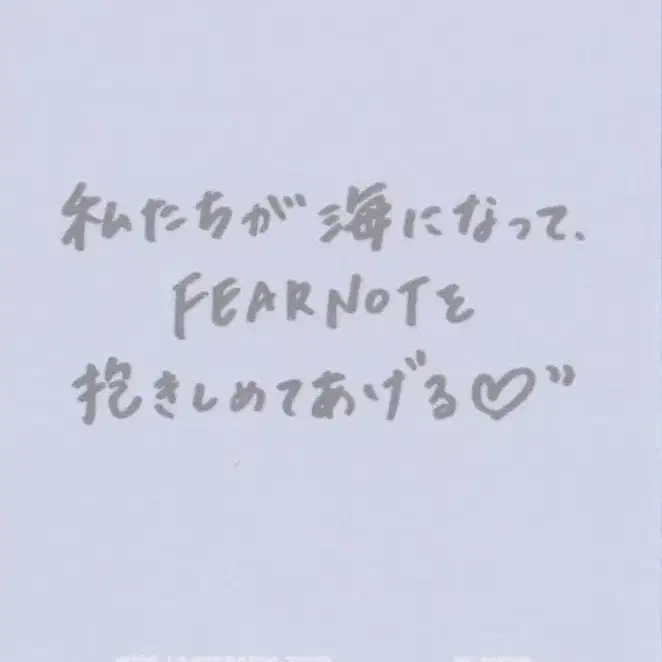 私たちが海になって、
FEARNOTを
抱きしめてあげる♡"